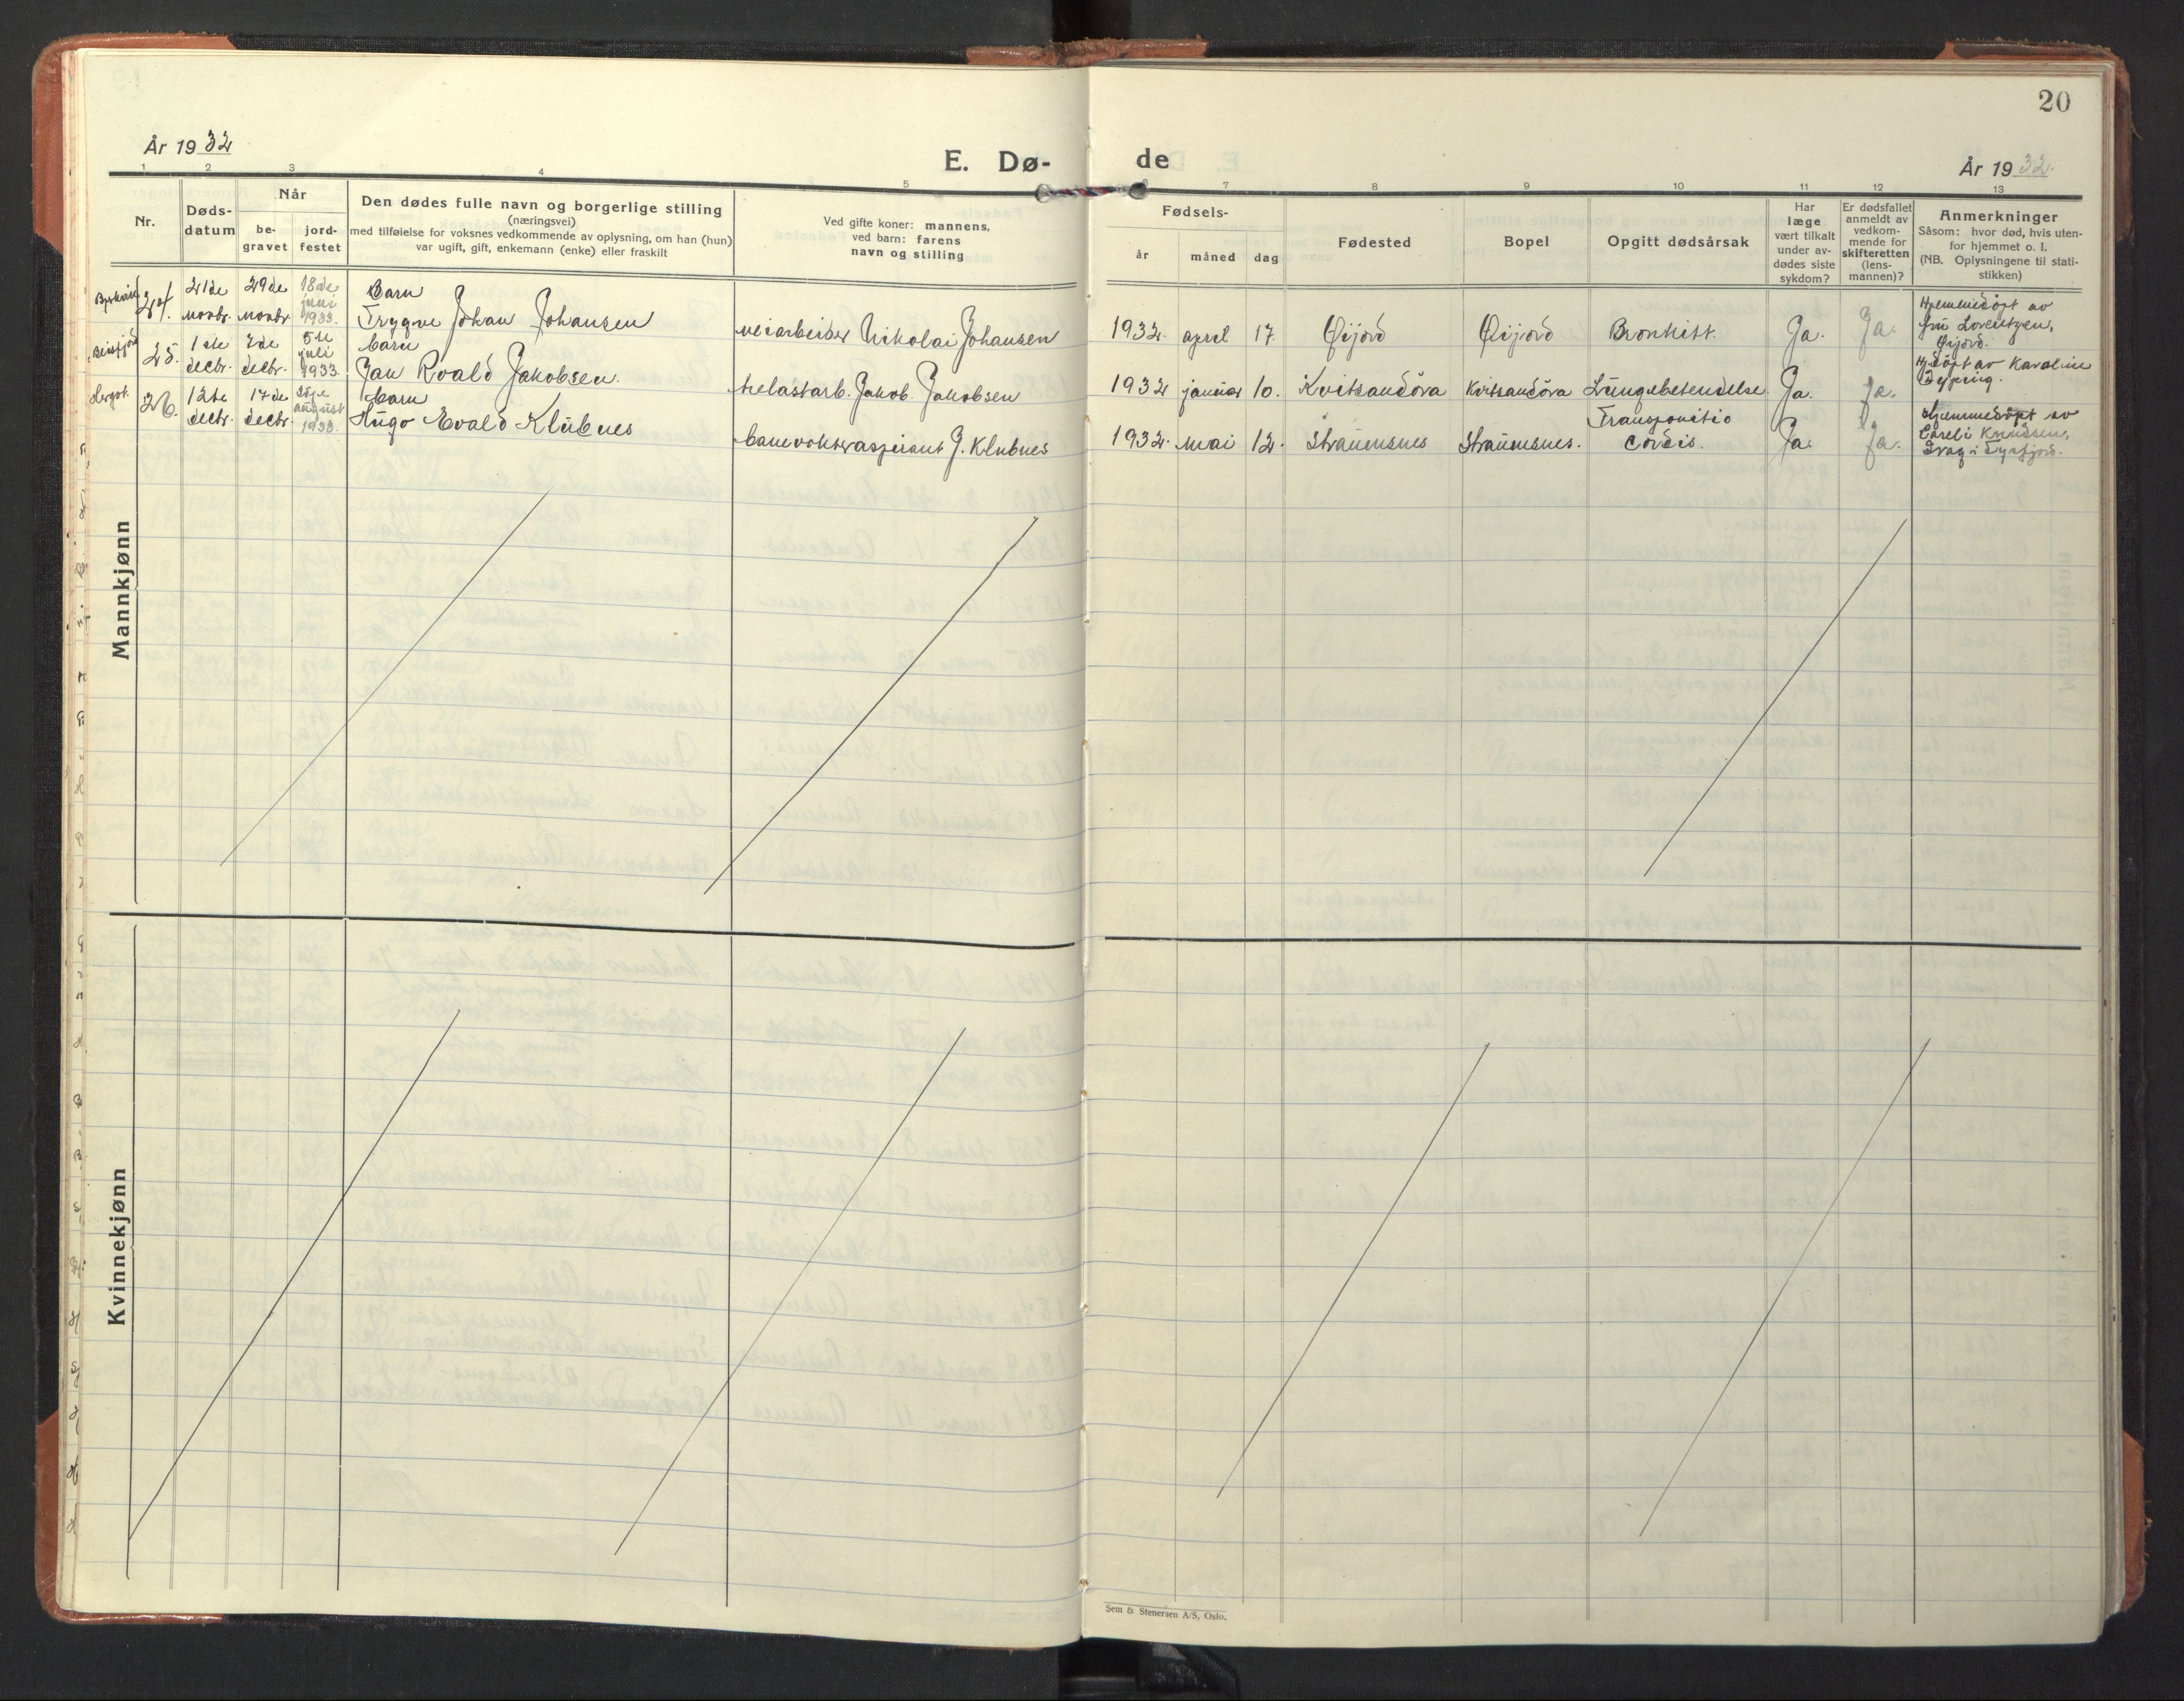 20
År 1932
E. Dø-
de
År 1932.
1 2 3 4 5 6 7 8 9 10 11 12 13
Nr.
Døds-
datum
Når
be-
gravet
jord-
festet
Den dødes fulle navn og borgerlige stilling
(næringsvei)
med tilføielse for voksnes vedkommende av oplysning, om han (hun)
var ugift, gift, enkemann (enke) eller fraskilt
Ved gifte koner: mannens,
ved barn: farens
navn og stilling
Fødsels-
år
måned
dag
Fødested
Bopel
Opgitt dødsårsak
Har
læge
vært tilkalt
under av-
dødes siste
sykdom?
Er dødsfallet
anmeldt av
vedkom-
mende for
skifteretten
(lens-
mannen)?
Anmerkninger
Såsom: hvor død, hvis uten-
for hjemmet o. l.
(NB. Oplysningene til stati-
stikken)
Mannkjønn
24.
21de
novbr.
29de
novbr.
18de
juni
1933.
Barn
Trygve Johan Johansen
veiarbeider Nikolai Johansen
1932. april 17. Øijord Øijord Bronkitt. Ja. Ja.
Hjemmedöpt av
fru Lorentzen,
Øijord.
Beisfjord
25.
1ste
decbr.
2de
decbr.
5te
juli
1933.
barn
Jan Roald Jakobsen.
helastarb. Jakob Jakobsen
1932 januar 10. Kvitsandöra Kvitsandöra Lungebetendelse Ja. Ja.
Hj.döpt av Karoline
Hergot.
26.
12te
decbr.
17de
decbr.
august
1933.
barn
Hugo Evald Klubnes
banevokteraspirant J. Klubnes
1932. mai 12. Straumsnes Straumsnes.
Transpositio
cordis.
Ja. Ja.
Hjemmedöpt av
Knudsen,
Drag i Tysfjord.
Kvinnekjønn
Sem & Stenersen A/S, Oslo.